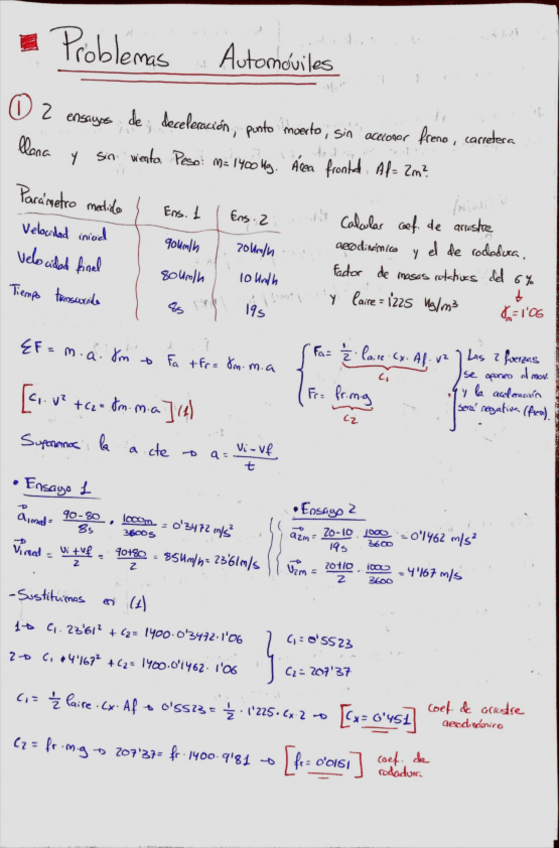 Problemas Automóviles
① 2 ensayos de deceleración, punto muerto, sin accionar freno, carretera
llana y sin viento. Peso: m=1400 kg. Área frontal Af= 2m².
Parámetro medido Ens. 1 Ens. 2
Velocidad inicial 90km/h 20km/h
Velocidad final 80km/h 10km/h
Tiempo transcurrido 8s 19s
Calcular coef. de arrastre
aerodinámico y el de rodadura.
Factor de masas rotativas del 6%
y ρaire=1'225 kg/m³
γm=1'06
ΣF = m·a·γm → Fa + Fr = γm·m·a
[C1·V² + C2 = γm·m·a] (1)
Fa = 1/2 · ρaire·Cx·Af·V²
C1
Fr = fr·m·g
C2
Las 2 fuerzas
se oponen al mov.
y la aceleración
será negativa (freno).
Suponemos la a cte → a = (Vi-Vf)/t
• Ensayo 1
a1med = (90-80)/8s · 1000m/3600s = 0'3472 m/s²
V1med = (Vi+Vf)/2 = (90+80)/2 = 85km/h = 23'61m/s
• Ensayo 2
a2m = (20-10)/19s · 1000/3600 = 0'1462 m/s²
V2m = (20+10)/2 · 1000/3600 = 4'167 m/s
- Sustituimos en (1)
1→ C1·23'61² + C2 = 1400·0'3472·1'06
2→ C1·4'167² + C2 = 1400·0'1462·1'06
C1 = 0'5523
C2 = 207'37
C1 = 1/2 ρaire·Cx·Af → 0'5523 = 1/2·1'225·Cx·2 → [Cx = 0'451] coef. de arrastre
aerodinámico
C2 = fr·m·g → 207'37 = fr·1400·9'81 → [fr = 0'0151] coef. de
rodadura.